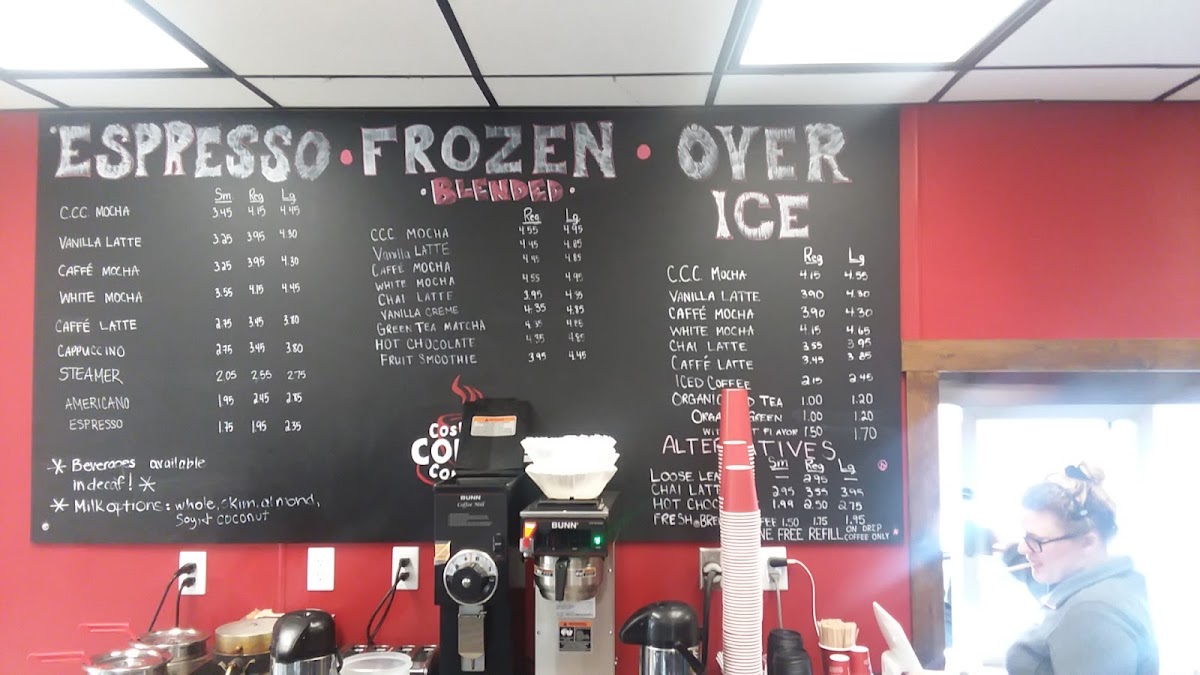 ESPRESSO • FROZEN • OVER ICE
Sm Reg Lg
C.C.C. MOCHA 3.45 4.15 4.45
VANILLA LATTE 3.25 3.95 4.30
CAFFÉ MOCHA 3.25 3.95 4.30
WHITE MOCHA 3.55 4.15 4.45
CAFFÉ LATTE 2.75 3.45 3.80
CAPPUCCINO 2.75 3.45 3.80
STEAMER 2.05 2.55 2.75
AMERICANO 1.95 2.45 2.85
ESPRESSO 1.75 1.95 2.35
* Beverages available
in decaf! *
* Milk options: whole, skim, almond,
Soy + coconut
• BLENDED •
Reg Lg
CCC MOCHA 4.55 4.95
Vanilla LATTE 4.45 4.85
CAFFÉ MOCHA 4.45 4.85
WHITE MOCHA 4.55 4.95
CHAI LATTE 3.95 4.55
VANILLA CREME 4.35 4.85
GREEN TEA MATCHA 4.35 4.85
HOT CHOCOLATE 4.35 4.85
FRUIT SMOOTHIE 3.95 4.45
Reg Lg
C.C.C. MOCHA 4.15 4.55
VANILLA LATTE 3.90 4.30
CAFFÉ MOCHA 3.90 4.30
WHITE MOCHA 4.15 4.65
CHAI LATTE 3.55 3.95
CAFFÉ LATTE 3.45 3.85
ICED COFFEE 2.15 2.45
ORGANIC TEA 1.00 1.20
GREEN 1.00 1.20
FLAVOR 1.50 1.70
Sm Reg Lg
LOOSE 2.95
CHAI 2.95 3.55 3.95
HOT 1.99 2.50 2.75
FRESH 1.50 1.75 1.95
FREE REFILL ON DRIP
COFFEE ONLY *
BUNN
Coffee Mill
BUNN